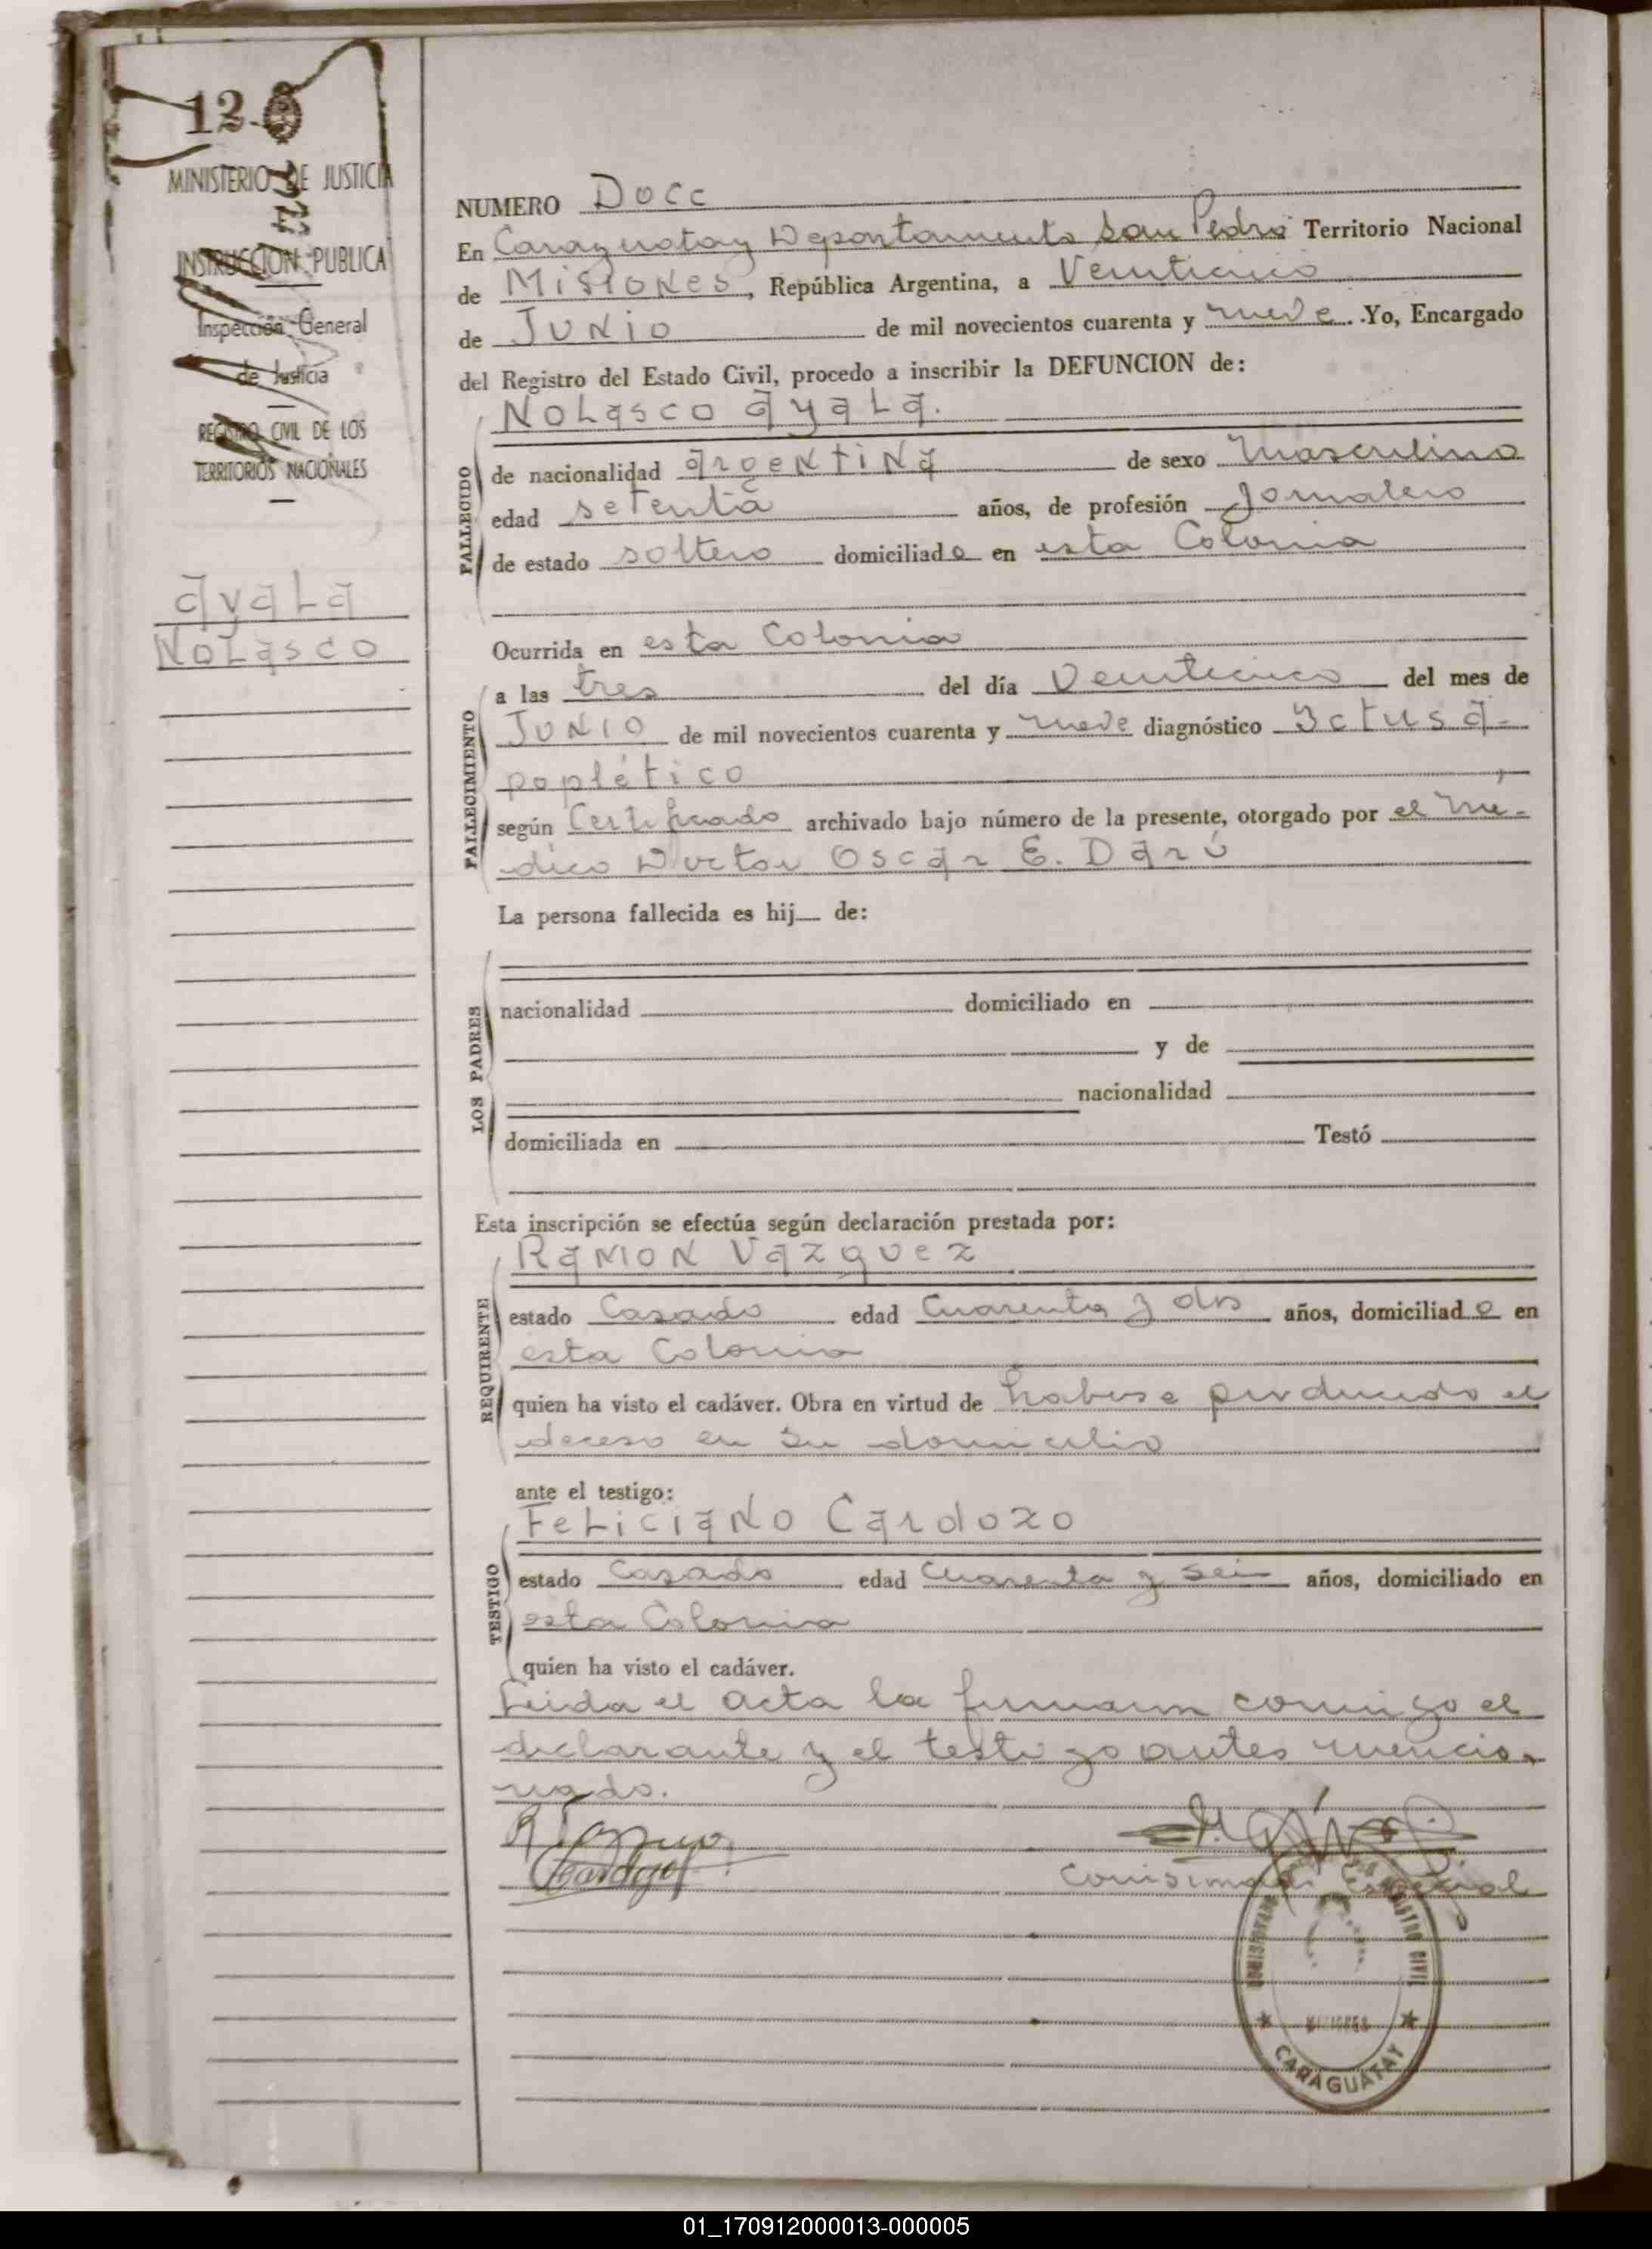 12
MINISTERIO DE JUSTICIA
E
INSTRUCCION PUBLICA
Inspección General
de Justicia
REGISTRO CIVIL DE LOS
TERRITORIOS NACIONALES
ayala
Nolasco
NUMERO Doce
En Caraguatay Departamento San Pedro Territorio Nacional
de Misiones, República Argentina, a Veinticinco
de Junio de mil novecientos cuarenta y nueve. Yo, Encargado
del Registro del Estado Civil, procedo a inscribir la DEFUNCION de:
Nolasco ayala.
FALLECIDO
de nacionalidad argentina de sexo masculino
edad setenta años, de profesión Jornalero
de estado soltero domiciliado en esta Colonia
Ocurrida en esta Colonia
FALLECIMIENTO
a las tres del día Veinticinco del mes de
Junio de mil novecientos cuarenta y nueve diagnóstico Ictus a-
poplético
según Certificado archivado bajo número de la presente, otorgado por el mé-
dico Doctor Oscar E. Darú
La persona fallecida es hij de:
LOS PADRES
nacionalidad domiciliado en
y de
nacionalidad
domiciliada en Testó
Esta inscripción se efectúa según declaración prestada por:
Ramon Vazquez
REQUIRENTE
estado Casado edad Cuarenta y dos años, domiciliado en
esta Colonia
quien ha visto el cadáver. Obra en virtud de haberse producido el
deceso en su domicilio
ante el testigo:
Feliciano Cardozo
TESTIGO
estado Casado edad Cuarenta y seis años, domiciliado en
esta Colonia
quien ha visto el cadáver.
Leida el acta la firmaron conmigo el
declarante y el testigo antes mencio-
nado.
Especial
REGISTRO CIVIL
MISIONES
CARAGUATAY
01_170912000013-000005